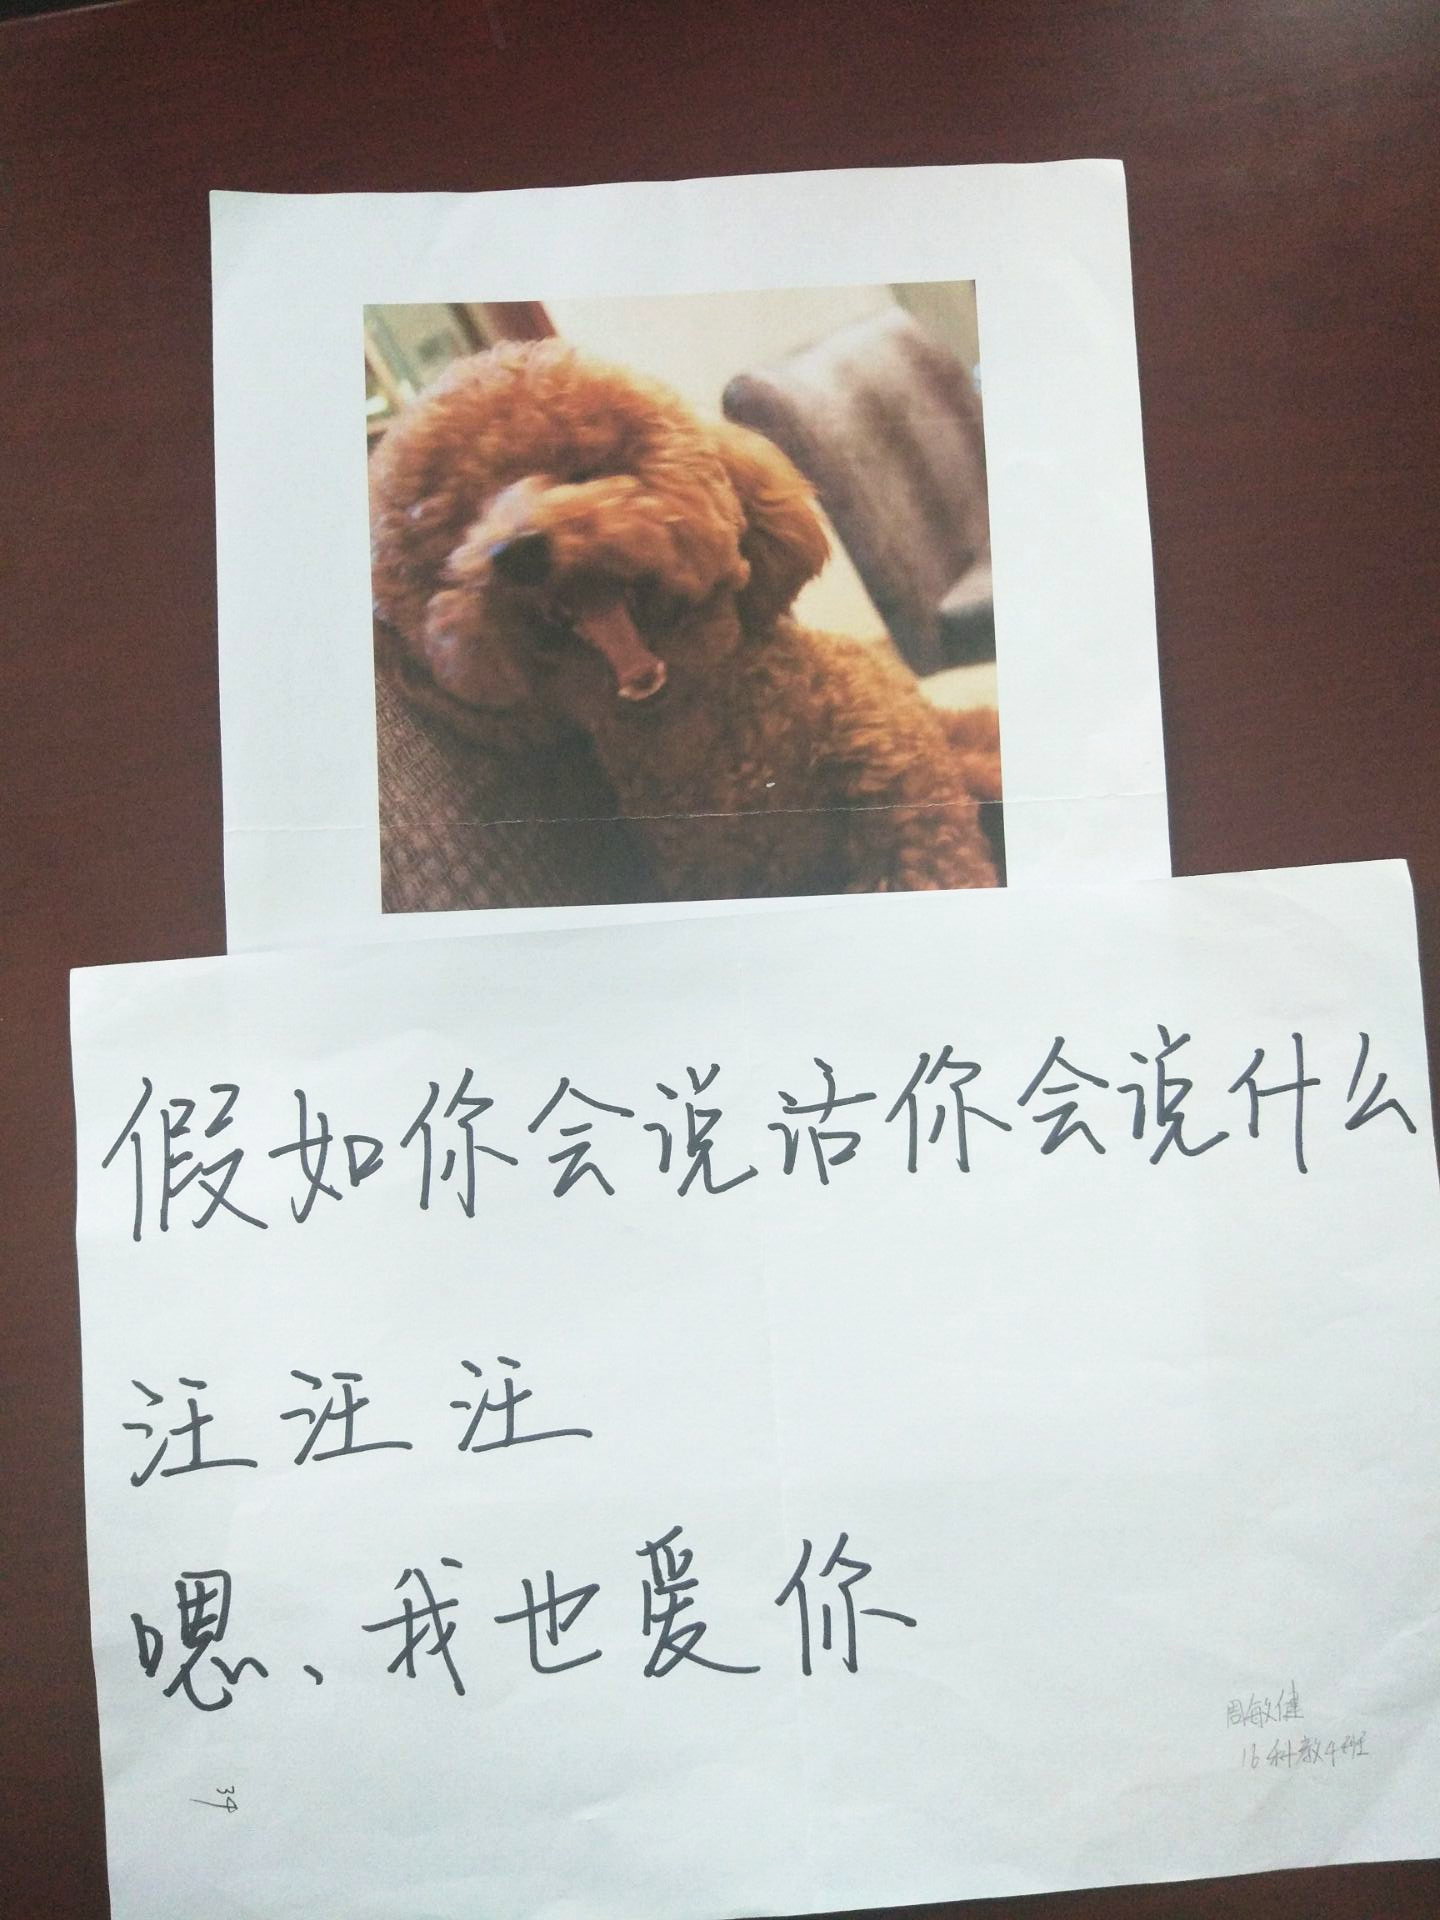 假如你会说话你会说什么
汪汪汪
嗯、我也爱你
周敏健
16科教4班
39